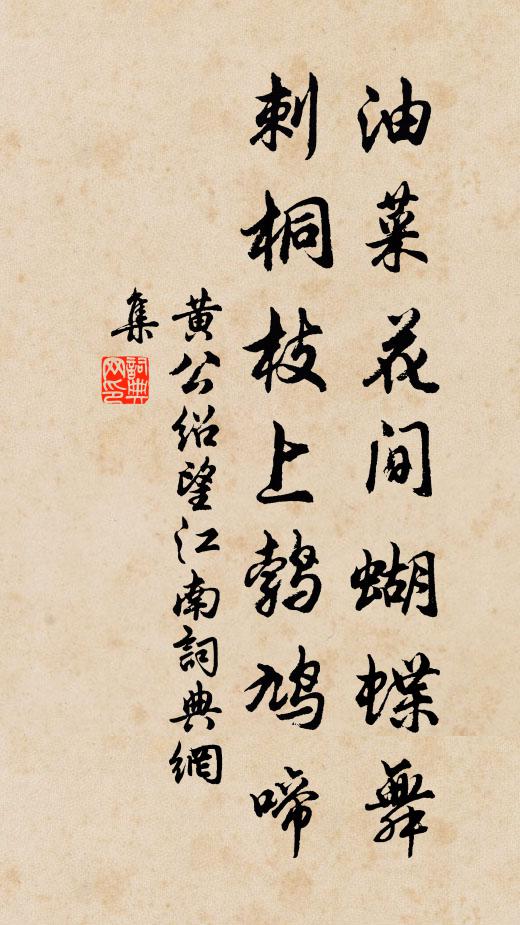 油菜花间蝴蝶舞
刺桐枝上鹁鸠啼
黄公绍望江南詞典網
集
詞典
网印